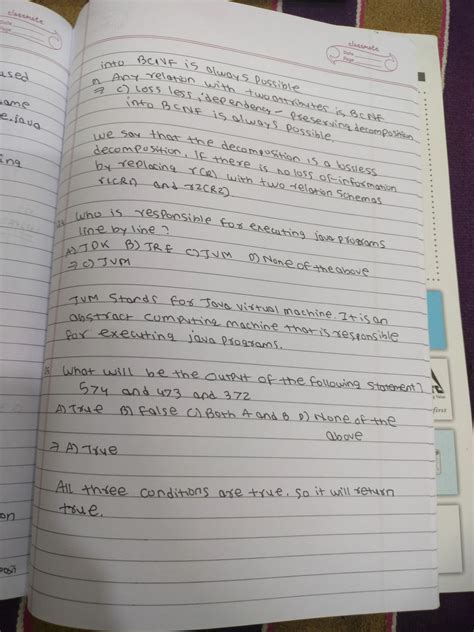 classmate
Date
Page
into BCNF is always possible
D) Any relation with two attributes is BCNF
⇒ C) Loss less, dependency - preserving decomposition
into BCNF is always possible.
We say that the decomposition is a lossless
decomposition, If there is no loss of information
by replacing r(R) with two relation Schemas
r1(R1) and r2(R2)
who is responsible for executing java programs
line by line?
A) JDK B) JRE C) JVM D) None of the above
⇒ C) JVM
JVM Stands for Java virtual machine. It is an
abstract computing machine that is responsible
for executing java programs.
What will be the output of the following statement?
574 and 473 and 372
A) True B) False C) Both A and B D) None of the
above
⇒ A) True
All three conditions are true. so it will return
true.
used
ame
e.java
ing
on
posit
first